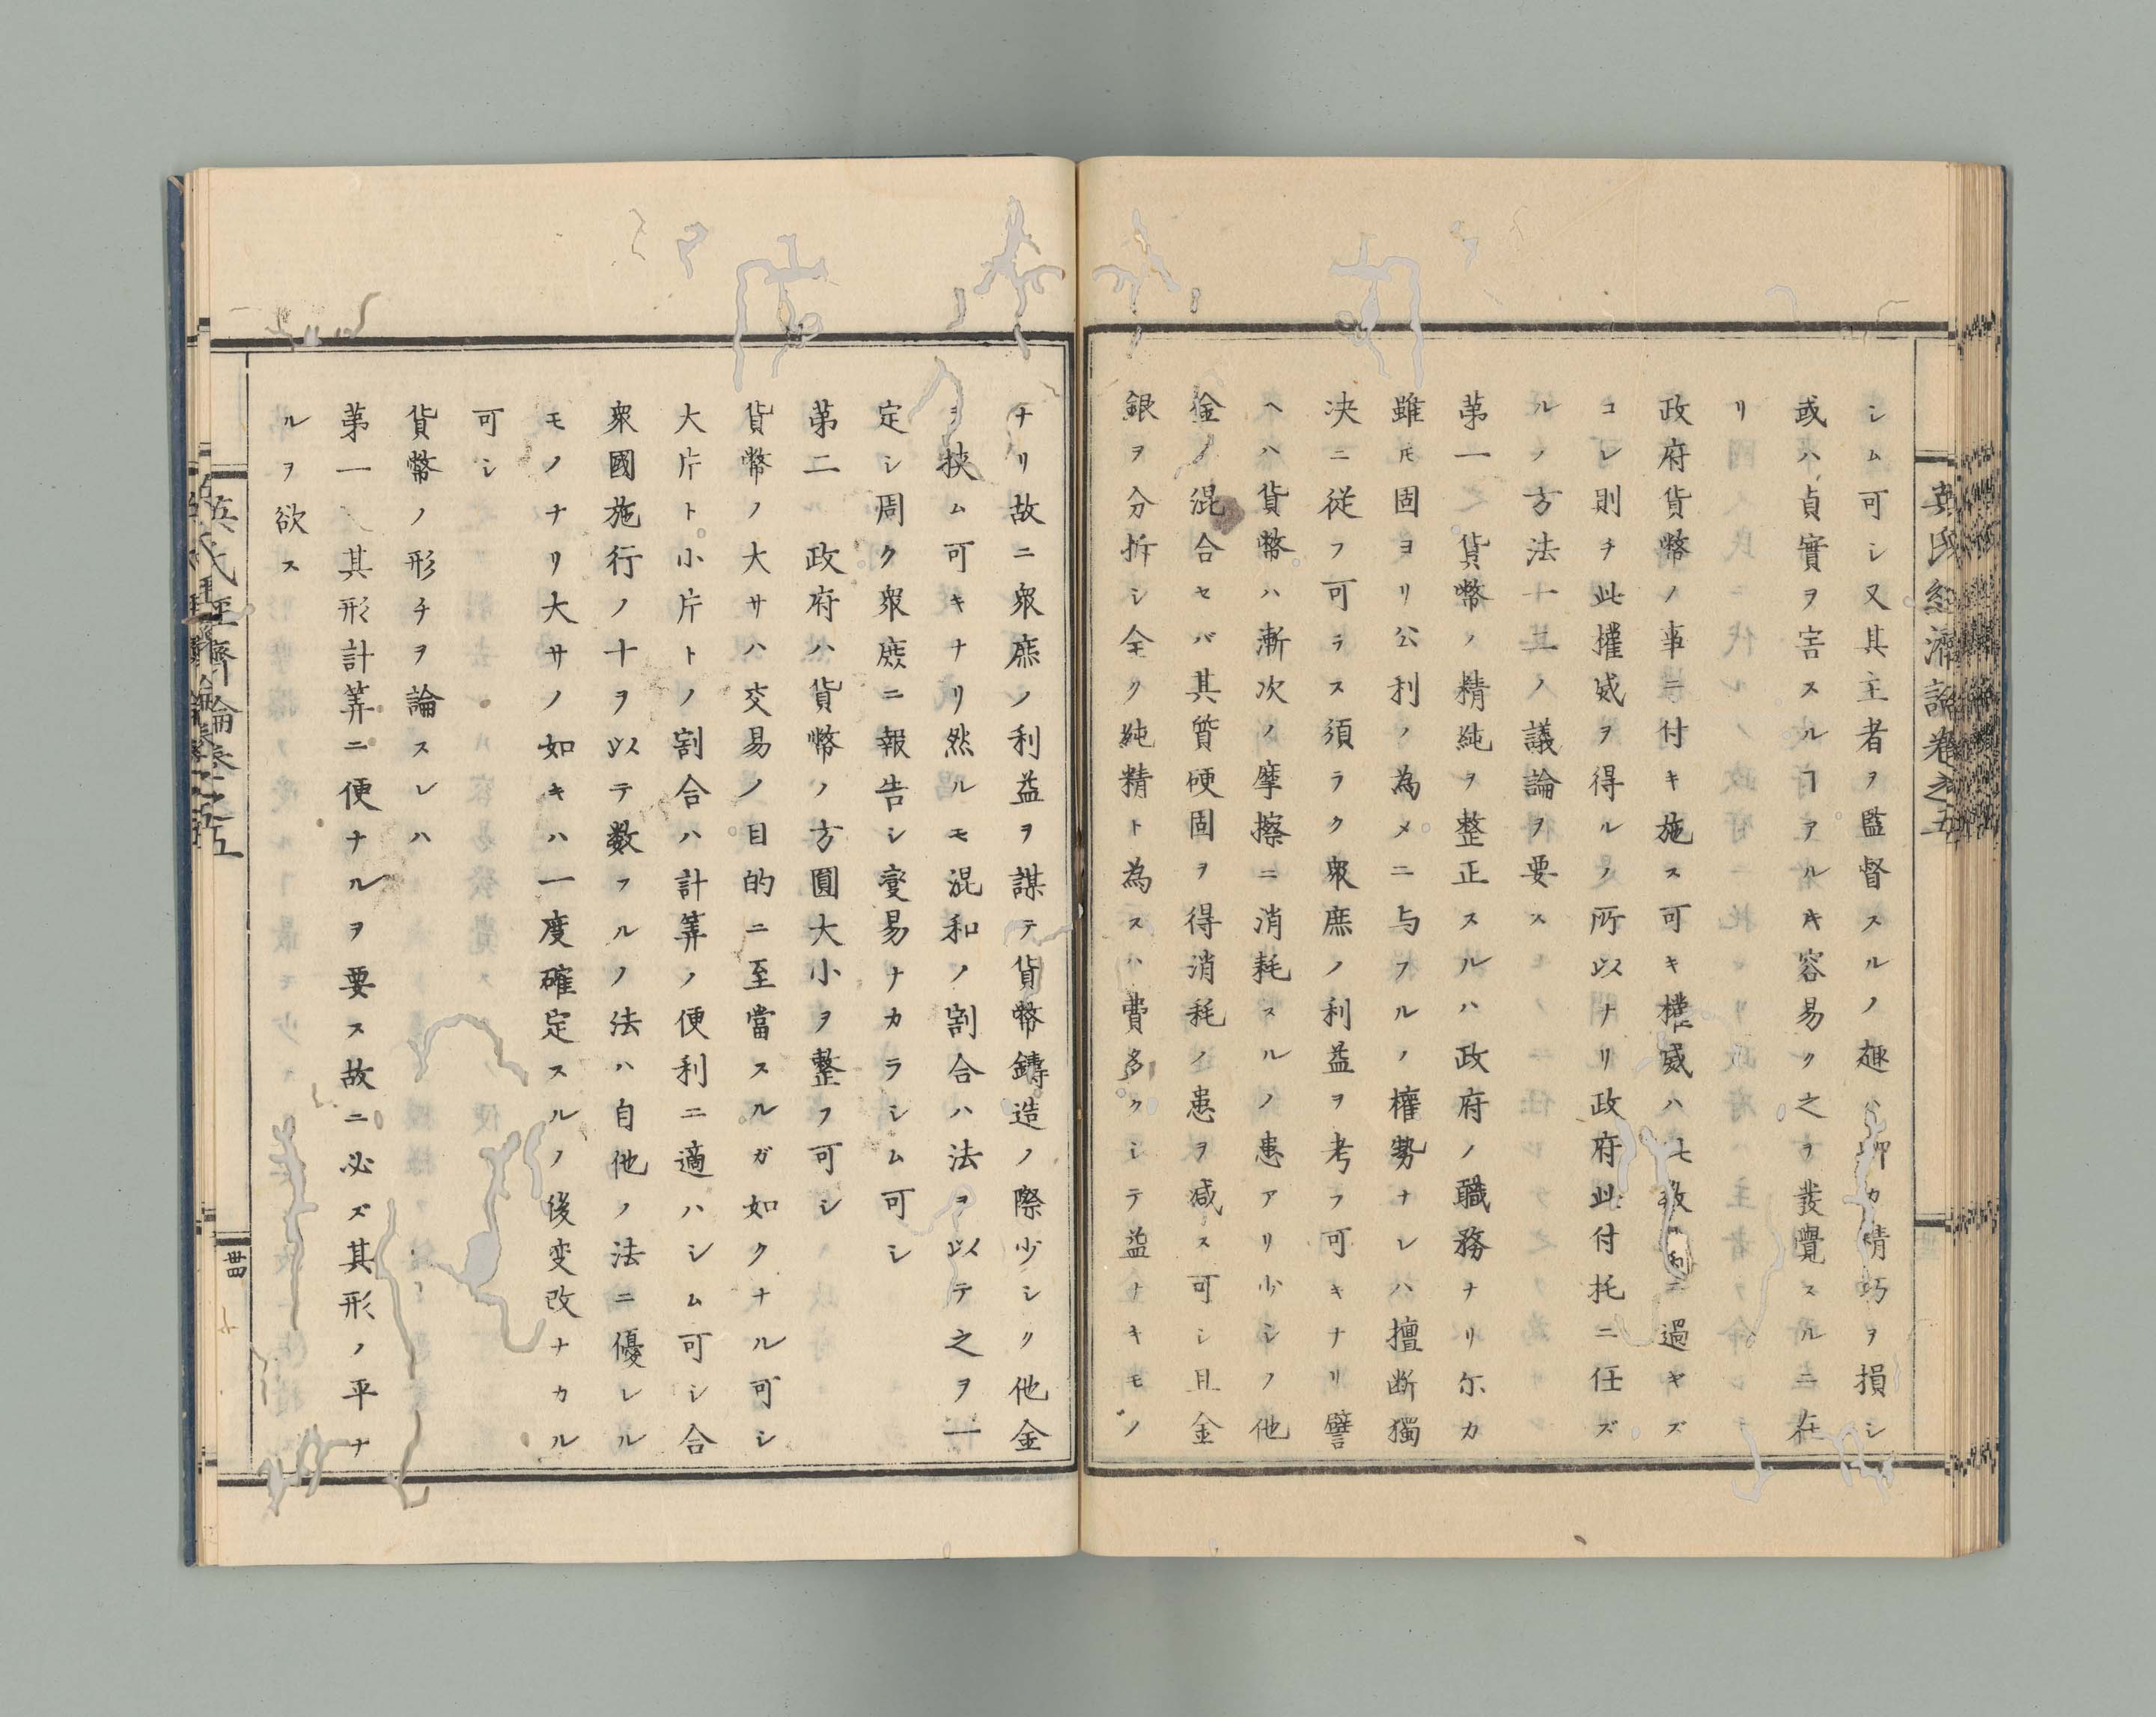 英氏經濟論卷之五
シム可シ又其主者ヲ監督スルノ趣聊カ精巧ヲ損シ
或ハ貞實ヲ害スルヿアルキ容易ク之ヲ裁覺スルニ在
リ
政府貨幣ノ事ニ付キ施ス可キ權威ハ七教ニ過キズ
コレ則チ此權威ヲ得ルノ所以ナリ政府此付托ニ任ズ
ルノ方法十三ノ議論ヲ要ス
第一 貨幣ノ精純ヲ整正スルハ政府ノ職務ナリ尓カ
雖𪜈固ヨリ公利ノ為メニ与フルノ權勢ナレハ擅断獨
决ニ従フ可ラス須ラク衆庶ノ利益ヲ考フ可キナリ譬
ヘハ貨幣ハ漸次ノ摩擦ニ消耗スルノ患アリ少シノ他
金ノ混合セバ其質硬固ヲ得消耗ノ患ヲ减ス可シ且金
銀ヲ分拆シ全ク純精ト為スハ費多クシテ益ナキモノ
ナリ故ニ衆庶ノ利益ヲ謀テ貨幣鑄造ノ際少シク他金
ヲ挾ム可キナリ然ルモ混和ノ割合ハ法ヲ以テ之ヲ一
定シ周ク衆庶ニ報告シ變易ナカラシム可シ
第二 政府ハ貨幣ノ方圓大小ヲ整フ可シ
貨幣ノ大サハ交易ノ目的ニ至當スルガ如クナル可シ
大片ト小片トノ割合ハ計筭ノ便利ニ適ハシム可シ合
衆國施行ノ十ヲ以テ数フルノ法ハ自他ノ法ニ優レル
モノナリ大サノ如キハ一度確定スルノ後変改ナカル
可シ
貨幣ノ形チヲ論スレハ
第一 其形計筭ニ便ナルヲ要ス故ニ必ズ其形ノ平ナ
ルヲ欲ス
英氏經濟論卷之五
卌四